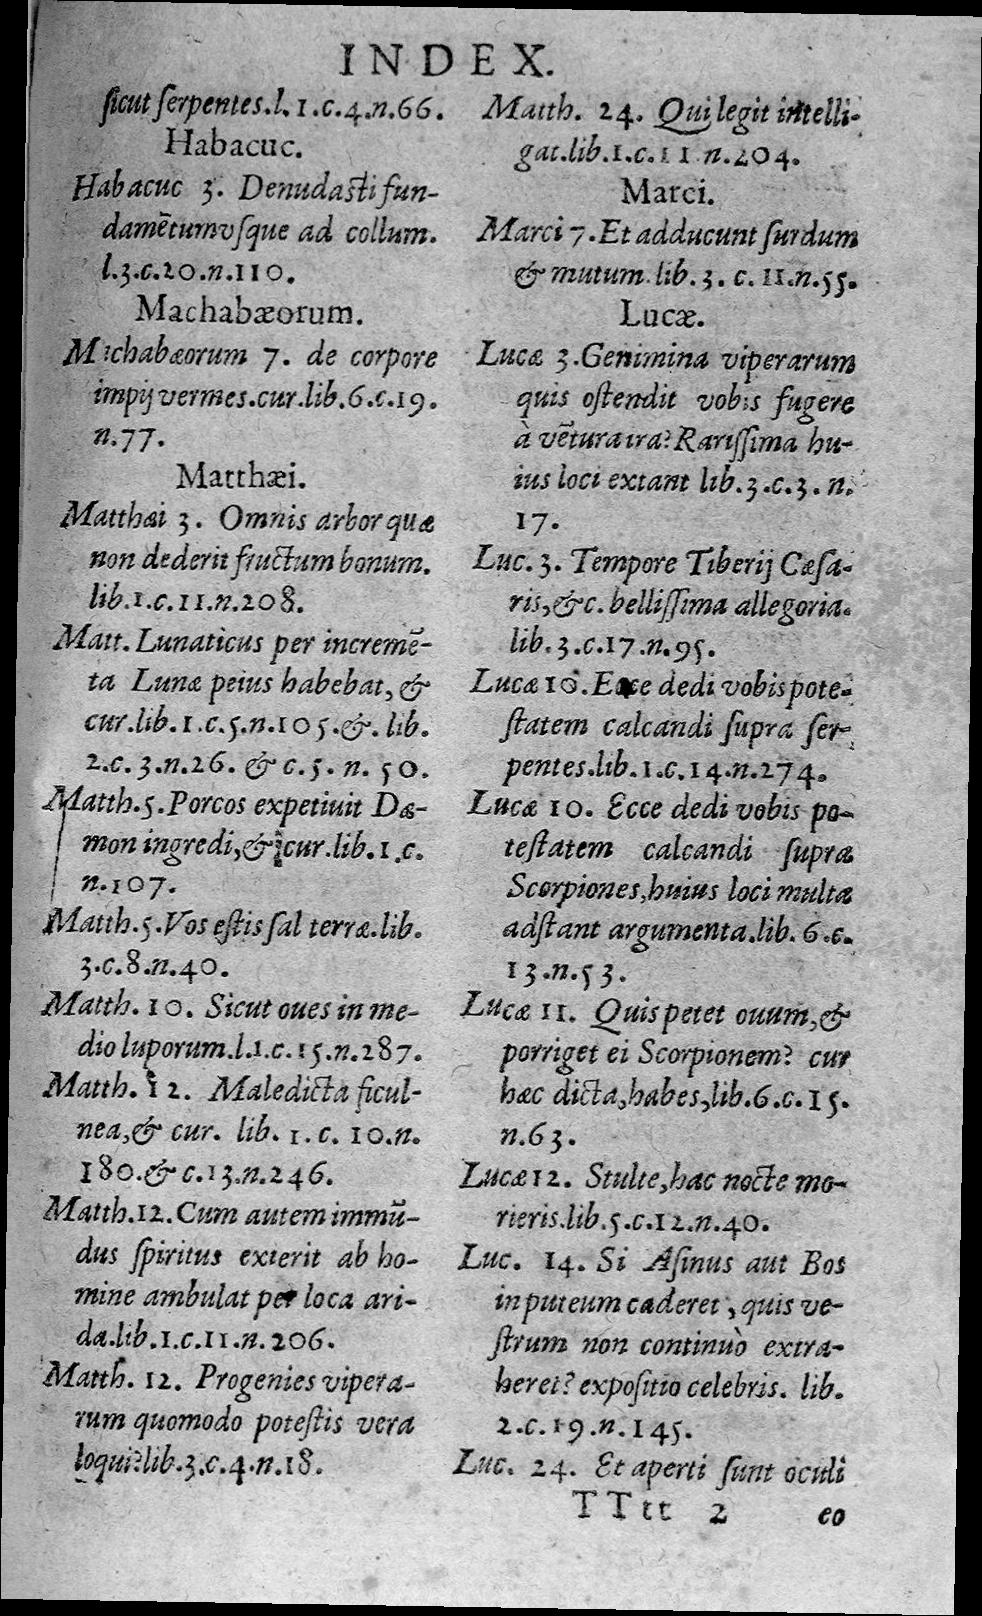 INDEX.
sicut serpentes.l.1.c.4.n.66.
Habacuc.
Habacuc 3. Denudasti fun-
damẽtumvsque ad collum.
l.3.c.20.n.110.
Machabæorum.
Machabæorum 7. de corpore
impij vermes.cur.lib.6.c.19.
n.77.
Matthæi.
Matthæi 3. Omnis arbor quæ
non dederit fructum bonum.
lib.1.c.11.n.208.
Matt. Lunaticus per incremẽ-
ta Lunæ peius habebat, &
cur.lib.1.c.5.n.105.&. lib.
2.c.3.n.26. & c.5. n. 50.
Matth.5.Porcos expetiuit Dæ-
mon ingredi,& cur.lib.1.c.
n.107.
Matth.5.Vos estis sal terræ.lib.
3.c.8.n.40.
Matth. 10. Sicut oues in me-
dio luporum.l.1.c.15.n.287.
Matth. 12. Maledicta ficul-
nea,& cur. lib. 1. c. 10.n.
180.& c.13.n.246.
Matth.12.Cum autem immũ-
dus spiritus exierit ab ho-
mine ambulat per loca ari-
da.lib.1.c.11.n.206.
Matth. 12. Progenies vipera-
rum quomodo potestis vera
loqui?lib.3.c.4.n.18.
Matth. 24. Qui legit intelli-
gat.lib.1.c.11.n.204.
Marci.
Marci 7.Et adducunt surdum
& mutum.lib.3. c. 11.n.55.
Lucæ.
Lucæ 3.Genimina viperarum
quis ostendit vobis fugere
à vẽtura ira? Rarissima hu-
ius loci extant lib.3.c.3. n.
17.
Luc.3. Tempore Tiberij Cæsa-
ris,&c. bellissima allegoria.
lib.3.c.17.n.95.
Lucæ 10.Ecce dedi vobis pote-
statem calcandi supra ser-
pentes.lib.1.c.14.n.274.
Lucæ 10. Ecce dedi vobis po-
testatem calcandi supra
Scorpiones,huius loci multa
adstant argumenta.lib.6.c.
13.n.53.
Lucæ 11. Quis petet ouum,&
porriget ei Scorpionem? cur
hæc dicta,habes,lib.6.c.15.
n.63.
Lucæ 12. Stulte,hac nocte mo-
rieris.lib.5.c.12.n.40.
Luc. 14. Si Asinus aut Bos
in puteum caderet, quis ve-
strum non continuò extra-
heret? expositio celebris. lib.
2.c.19.n.145.
Luc. 24. Et aperti sunt oculi
TTtt 2 eo